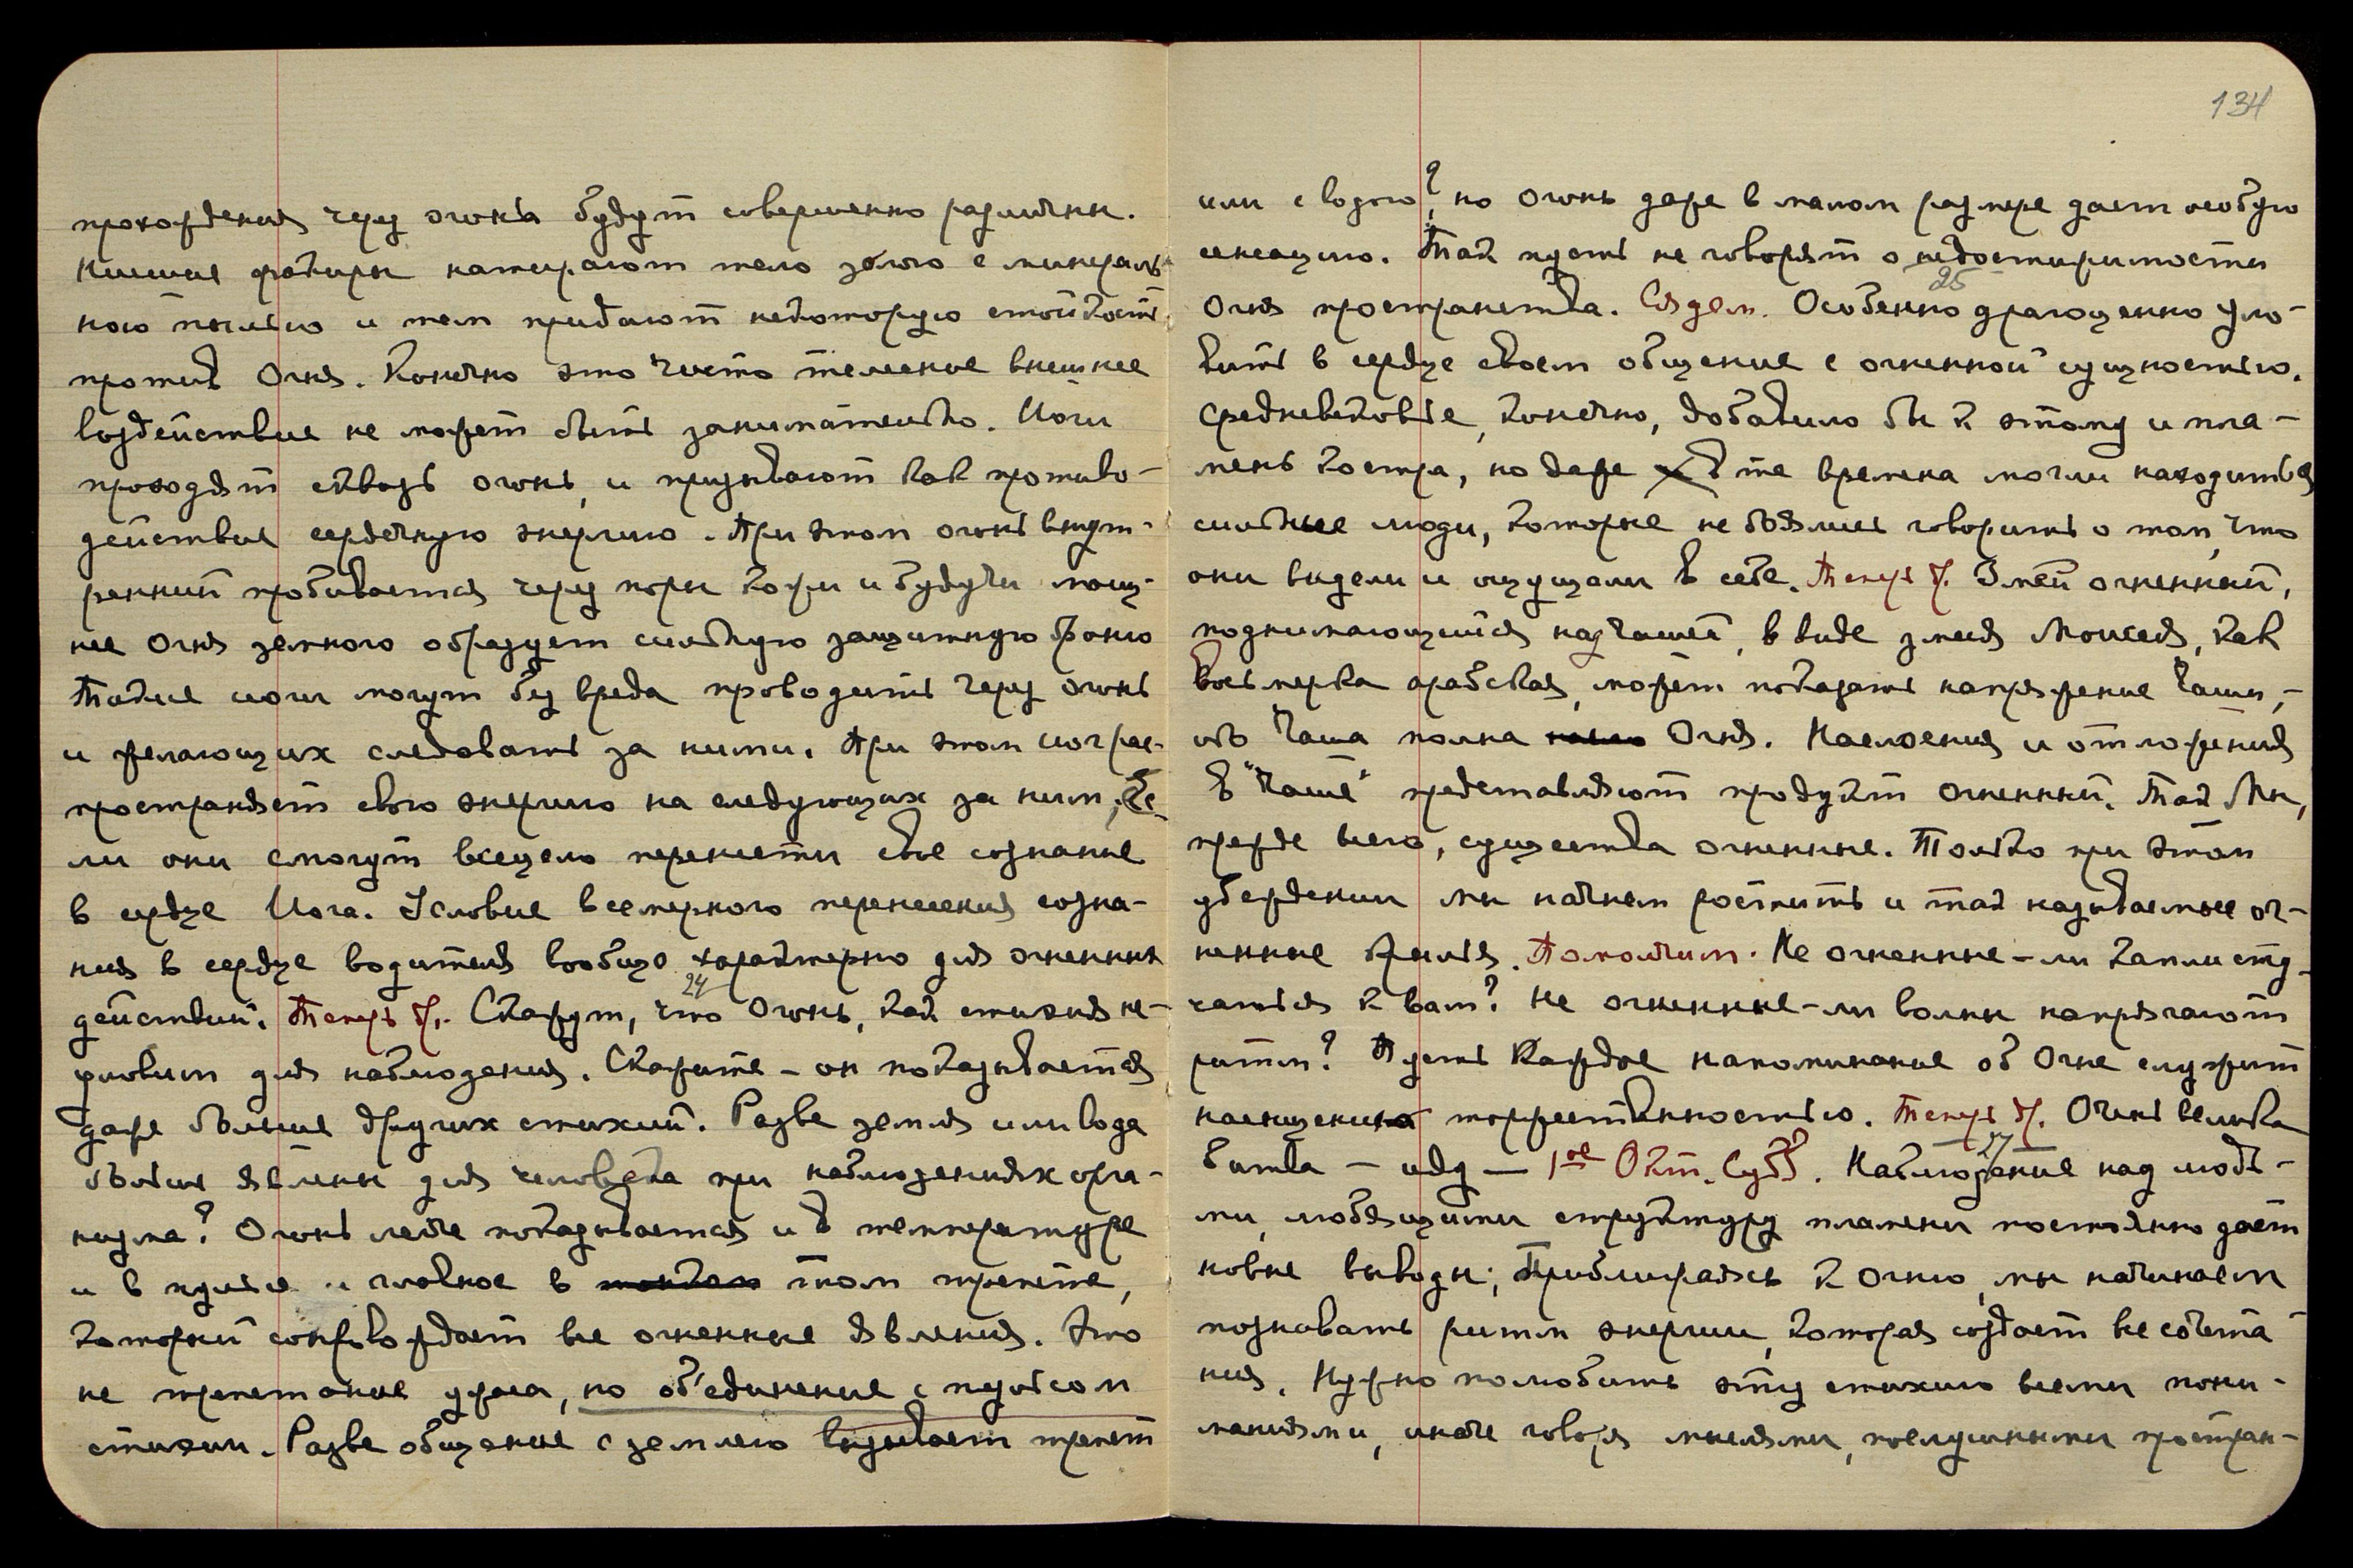 прохождения через огонь будут совершенно различны.
Низшие факиры натирают тело золою с минераль-
ною пылью и тем придают некоторую стойкость
против Огня. Конечно это чисто телесное внешнее
воздействие не может быть занимательно. Йоги
проходят сквозь огонь, и призывают как противо-
действие сердечную энергию. При этом огонь внут-
ренний пробивается через поры кожи и будучи мощ-
нее Огня земного образует сильную защитную броню
Такие йоги могут без вреда проводить через огонь
и желающих следовать за ними. При этом йог рас-
пространяет свою энергию на следующих за ним, Ес-
ли они смогут всецело перенести свое сознание
в сердце Йога. Условие всемерного перенесения созна-
ния в сердце водителя вообще характерно для огненных
действий. Теперь 24 Скажут, что Огонь, как стихия не-
уловим для наблюдения. Скажите – он показывается
даже больше других стихий. Разве земля или вода
больше явлены для человека при наблюдениях орга-
низма? Огонь легче показывается и в температуре
и в пульсе и главное в том трепете,
который сопровождает все огненные явления. Это
не трепетание ужаса, но об'единение с пульсом
стихии. Разве общение с землею вызывает трепет
134
или с водою? но Огонь даже в малом размере дает особую
сенсацию. Так пусть не говорят о недостижимости
Огня пространства. Сядем. 25 Особенно драгоценно уло-
вить в сердце своем общение с огненной сущностью.
Средневековье, конечно, добавило бы к этому и пла-
мень костра, но даже в те времена могли находиться
сильные люди, которые не боялись говорить о том, что
они видели и ощущали в себе. Теперь Змей огненный,
поднимающийся над чашей, в виде змея Моисея, как
восьмерка арабская, может показать напряжение Чаши, –
ибо Чаша полна Огня. Наслоения и отложения
в "Чаше" представляют продукт огненный. Так Мы,
прежде всего, существа огненные. Только при этом
убеждении мы начнем растить и так называемые ог-
ненные крылья. Помолчим. Не огненные-ли капли сту-
чатся к вам? Не огненные-ли волны напрягают
ритм? Пусть каждое напоминание об Огне служит
насыщению торжественностью. Теперь Очень велика
битва – иду – 1ое Окт. Субб. 27 Наблюдение над людь-
ми, любящими структуру пламени постоянно дает
новые выводы; Приближаясь к Огню, мы начинаем
познавать ритм энергии, которая создает все сочета-
ния. Нужно полюбить эту стихию всеми пони-
маниями, иначе говоря мыслями, послушными простран-